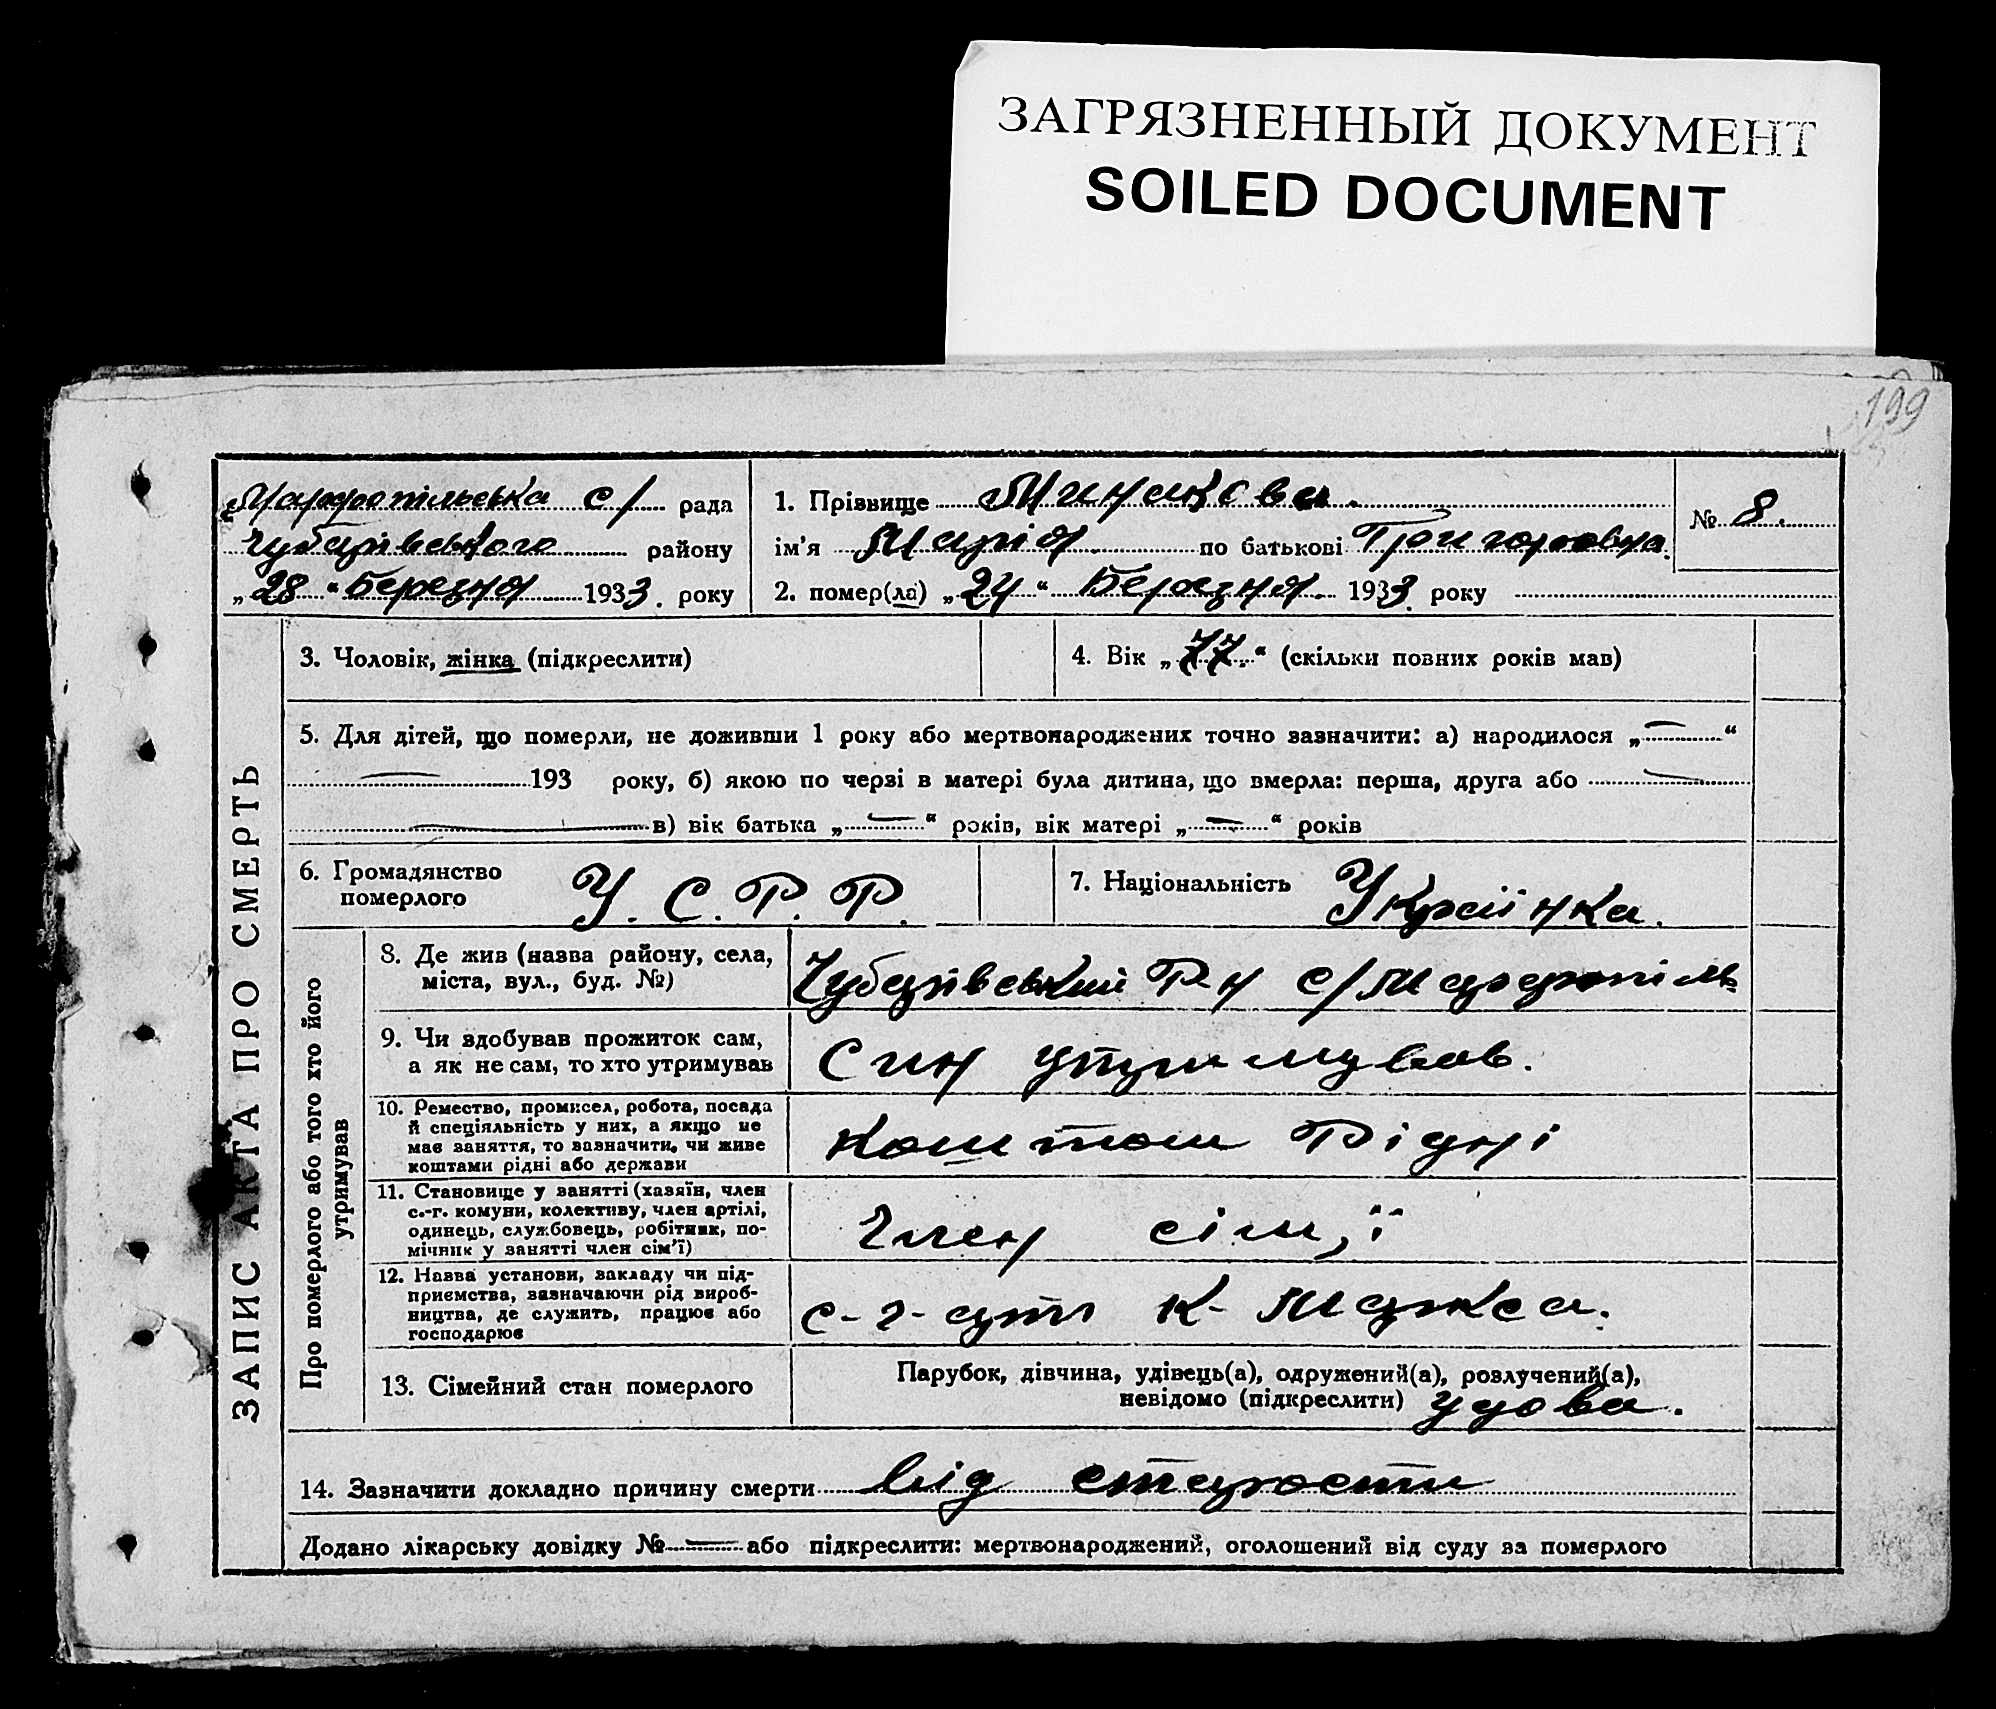 ЗАГРЯЗНЕННЫЙ ДОКУМЕНТ
SOILED DOCUMENT
199
ЗАПИС АКТА ПРО СМЕРТЬ
Марфопільська с/ рада
Чубарівського району
„28“ Березня 1933. року
1. Прізвище Минакова.
ім’я Марія по батькові Григоровна.
2. помер(ла) „24“ Березня. 1933. року
№ 8.
3. Чоловік, жінка (підкреслити)
4. Вік „77.“ (скільки повних років мав)
5. Для дітей, що померли, не доживши 1 року або мертвонароджених точно зазначити: а) народилося „—“
— 193 року, б) якою по черзі в матері була дитина, що вмерла: перша, друга або —
— в) вік батька „—“ років, вік матері „—“ років
6. Громадянство
померлого У. С. Р. Р.
7. Національність Українка.
Про померлого або того хто його
утримував
8. Де жив (назва району, села,
міста, вул., буд. №)
Чубарівський Р-н с/Марфопіль
9. Чи здобував прожиток сам,
а як не сам, то хто утримував
Син утримував.
10. Ремество, промисел, робота, посада
й спеціяльність у них, а якщо не
має заняття, то зазначити, чи живе
коштами рідні або держави
Коштом Рідні
11. Становище у занятті (хазяїн, член
с.-г. комуни, колективу, член артілі,
одинець, службовець, робітник, по-
мічник у занятті член сім’ї)
Член сім,ї
12. Назва установи, закладу чи під-
приємства, зазначаючи рід вироб-
ництва, де служить, працює або
господарює
с-г-арт К-Маркса.
13. Сімейний стан померлого
Парубок, дівчина, удівець(а), одружений(а), розлучений(а),
невідомо (підкреслити) удова.
14. Зазначити докладно причину смерти від старости
Додано лікарську довідку № — або підкреслити: мертвонароджений, оголошений від суду за померлого